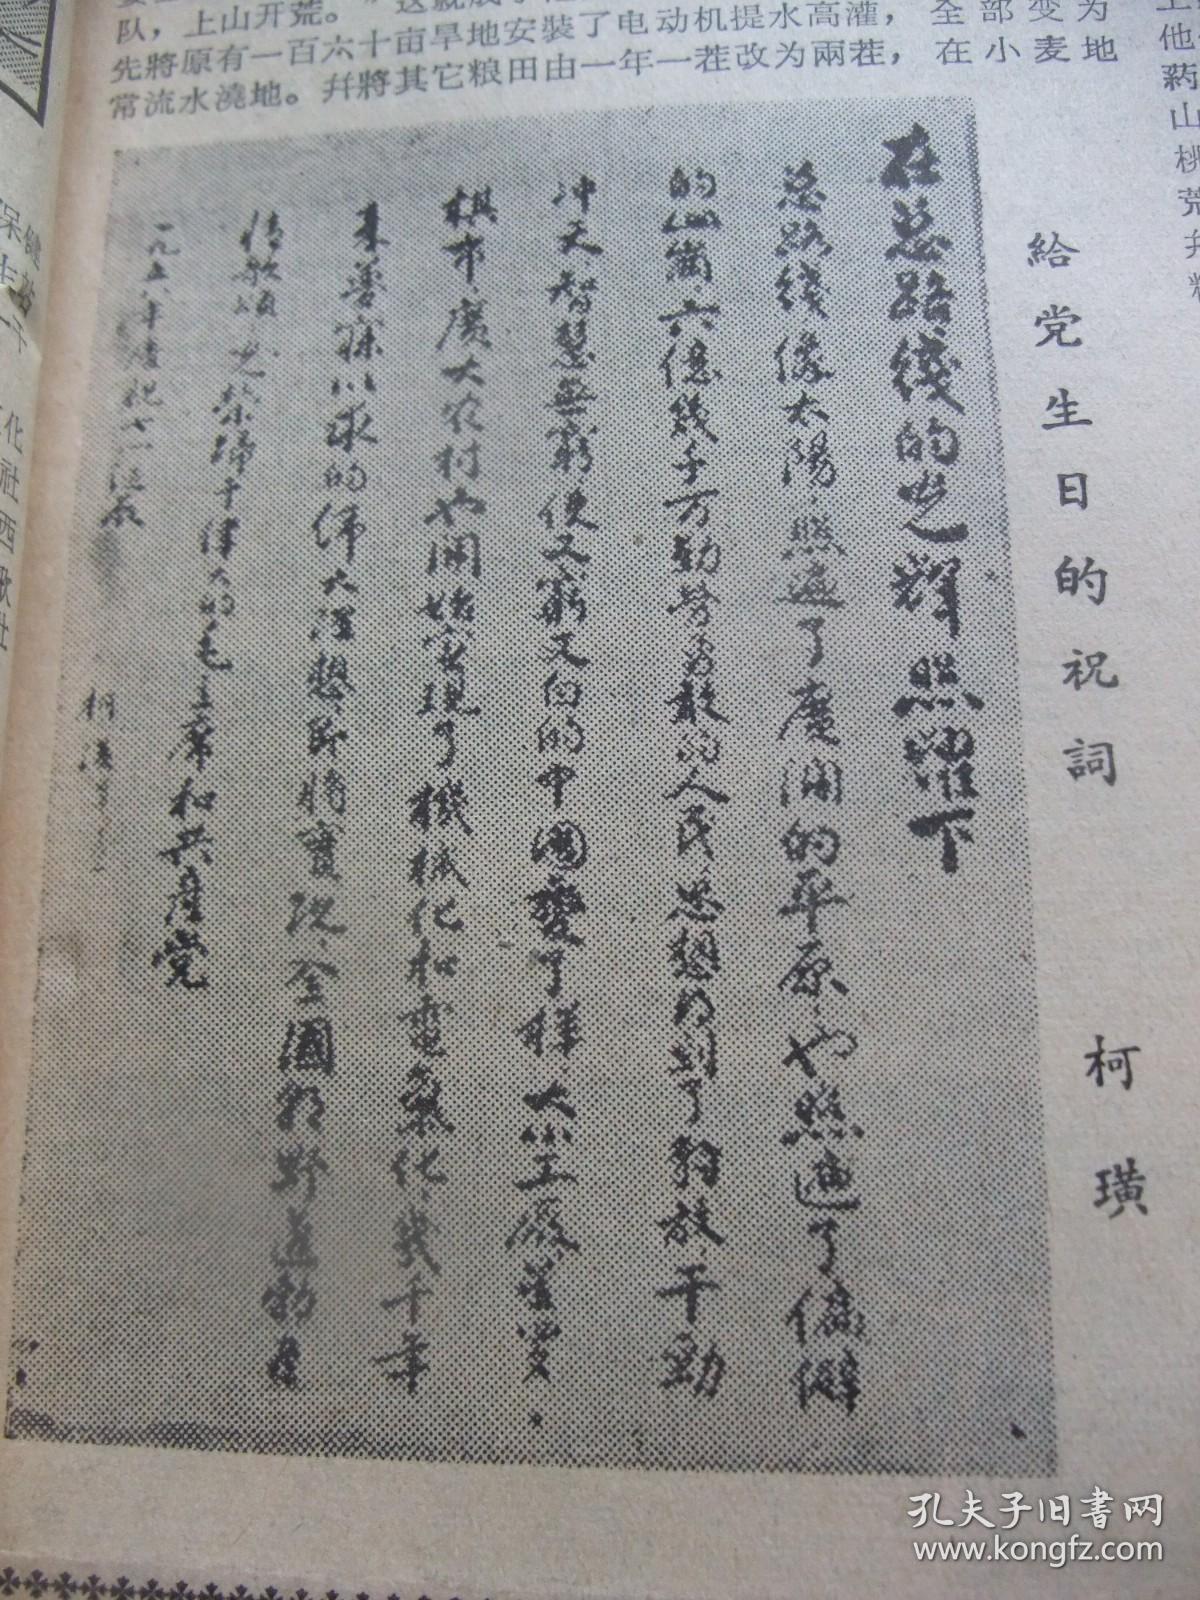 队，上山开荒。"这就成了
先將原有一百六十亩旱地安裝了电动机提水高灌，全部变为
常流水澆地。幷將其它粮田由一年一茬改为兩茬，在小麦地
給党生日的祝詞
柯璜
在总路线的光辉照耀下
总路线像太陽，照遍了廣阔的平原，也照遍了偏僻
的山崗，六億幾千万勤劳勇敢的人民，思想得到了豹放，干勁
冲天，智慧無窮，使又窮又白的中國變了樣，大小工廠星罗
棋布，廣大农村也開始实现了機械化和電氣化，幾千年
来夢寐以求的偉大理想，即將實現，全國朝野盡都尽
情歌颂光荣归于偉大的毛主席和共產党
柯璜
他
葯
山
桃
荒
保健
化
社
西
歌
社
孔夫子旧书网
www.kongfz.com